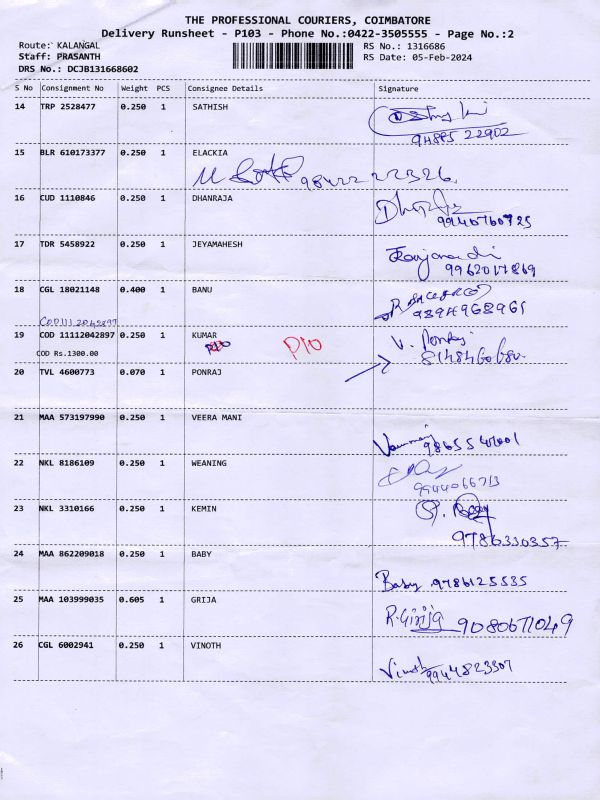 THE PROFESSIONAL COURIERS, COIMBATORE
Delivery Runsheet - P103 - Phone No.:0422-3505555 - Page No.:2
Route: KALANGAL RS No.: 1316686
Staff: PRASANTH RS Date: 05-Feb-2024
DRS No.: DCJB131668602
S No Consignment No Weight PCS Consignee Details Signature
14 TRP 2528477 0.250 1 SATHISH
94885 22902
15 BLR 610173377 0.250 1 ELACKIA
9842222326
16 CUD 1110846 0.250 1 DHANRAJA
9940760725
17 TDR 5458922 0.250 1 JEYAMAHESH
9962017869
18 CGL 18021148 0.400 1 BANU
COD111 2042897
19 COD 11112042897 0.250 1 KUMAR
COD Rs.1300.00
20 TVL 4600773 0.070 1 PONRAJ
21 MAA 573197990 0.250 1 VEERA MANI
22 NKL 8186109 0.250 1 WEANING
9944066713
23 NKL 3310166 0.250 1 KEMIN
9786330357
24 MAA 862209018 0.250 1 BABY
Baby 9786125535
25 MAA 103999035 0.605 1 GRIJA
R.Girija 9080671049
26 CGL 6002941 0.250 1 VINOTH
9944823307